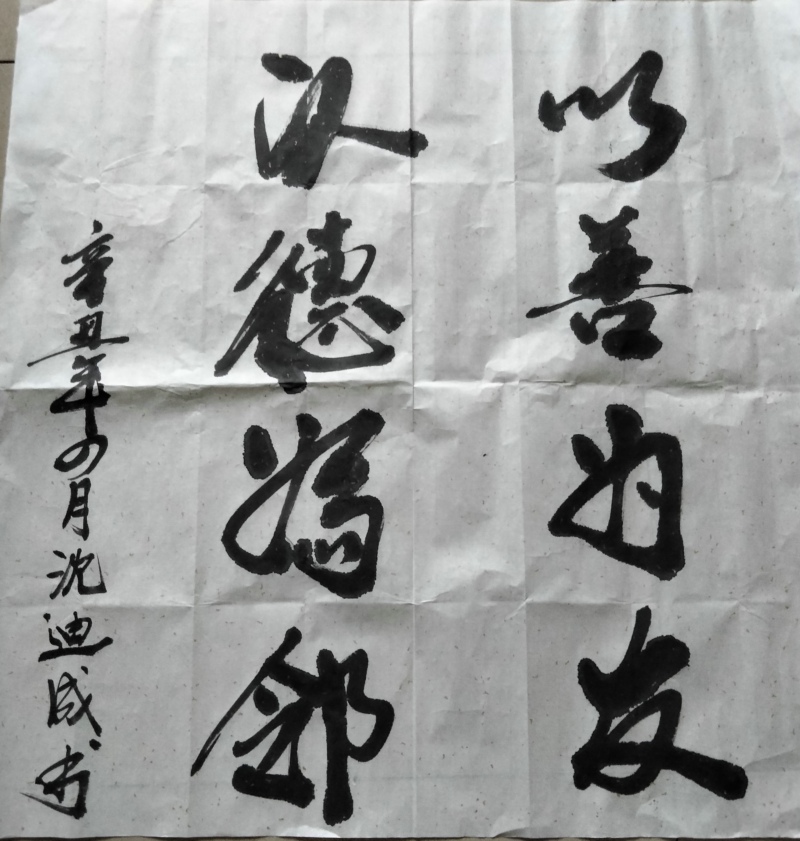 以善为友
以德為邻
辛丑年四月沈迪成书